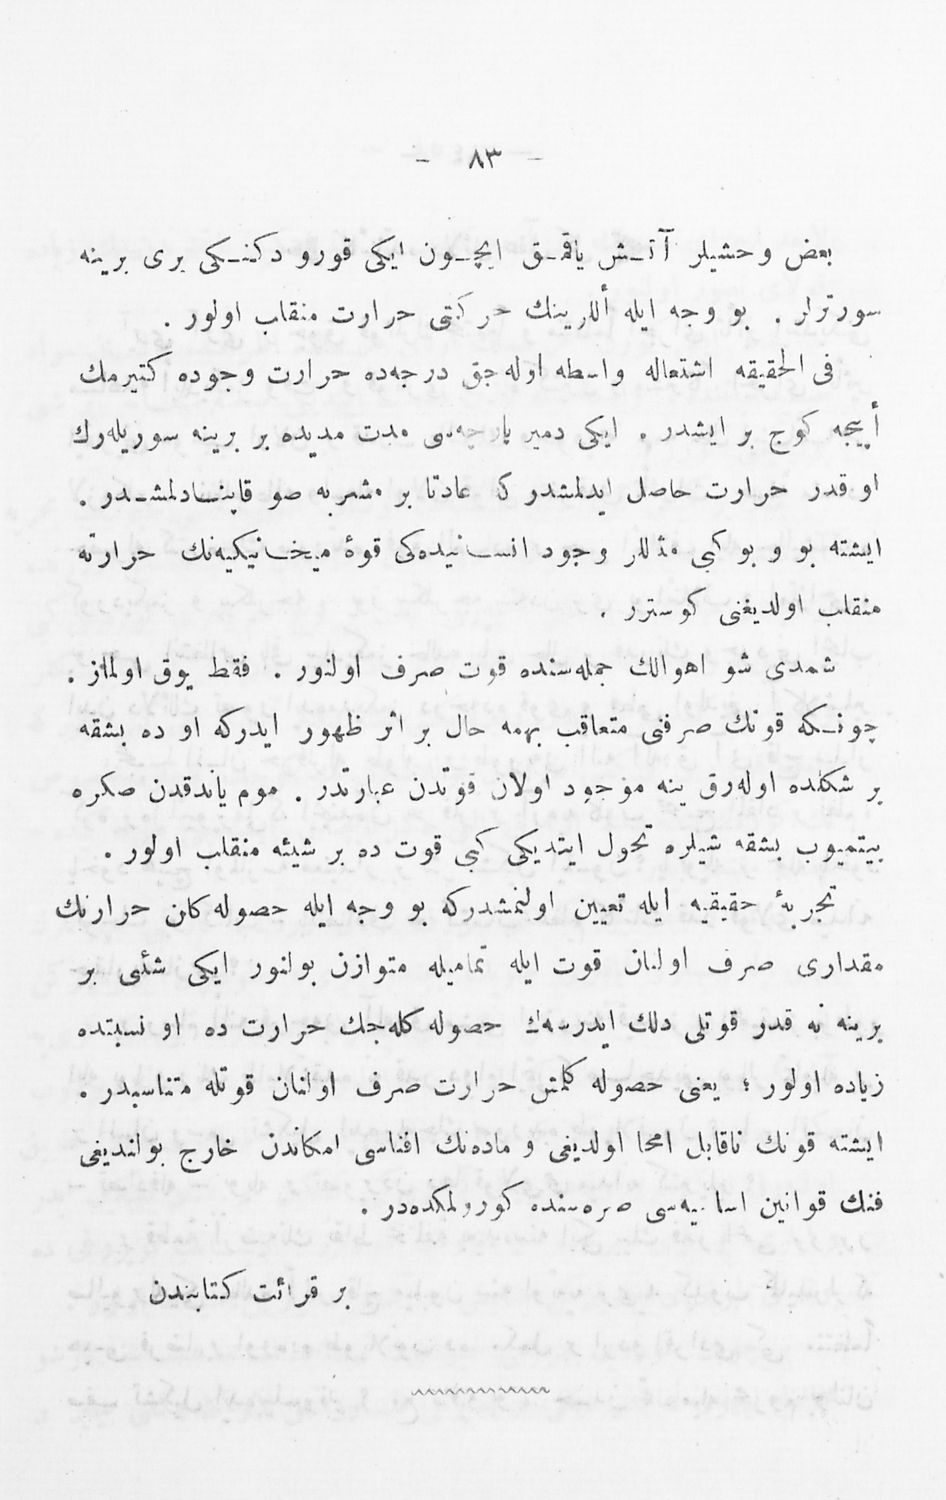 - ٨٣ -
بعض وحشیلر آتـش یاقمـق ایچـون ایکی قورو دکنـکی بری برینه
سورترلر . بو وجه ایله أللرینك حرکتی حرارت منقلب اولور .
فی الحقیقه اشتعاله واسطه اوله‌جق درجه‌ده حرارت وجوده کتیرمك
أپیجه کوج بر ایشدر . ایکی دمیر پارچه‌سی مدت مدیده بر برینه سوریله‌رك
او قدر حرارت حاصل ایدلمشدر که عادتا بر مشربه صو قاینـادلمشـدر .
ایشته بو و بو کبی مثللر وجود انسـانیده‌کی قوۀ میخـانیکیه‌نك حرارته
منقلب اولدیغنی کوسترر .
شمدی شو احوالك جمله‌سنده قوت صرف اولنور . فقط یوق اولماز .
چونـکه قوتك صرفنی متعاقب بهمه حال بر اثر ظهور ایدرکه او ده بشقه
بر شکلده اوله‌رق ینه موجود اولان قوتدن عبارتدر . موم یاندقدن صکره
بیتمیوب بشقه شیلره تحول ایتدیکی کبی قوت ده بر شیئه منقلب اولور .
تجربۀ حقیقیه ایله تعیین اولنمشدرکه بو وجه ایله حصوله کلن حرارتك
مقداری صرف اولنان قوت ایله تمامیله متوازن بولنور ایکی شئی بر
برینه نه قدر قوتلی دلك ایدرسه‌ك حصوله کله‌جك حرارت ده او نسبتده
زیاده اولور ؛ یعنی حصوله کلمش حرارت صرف اولنان قوتله متناسبدر .
ایشته قوتك ناقابل امحا اولدیغی و ماده‌نك افناسی امکاندن خارج بولندیغی
فنك قوانین اساسیه‌سی صره‌سنده کورولمکده‌در .
بر قرائت کتابندن